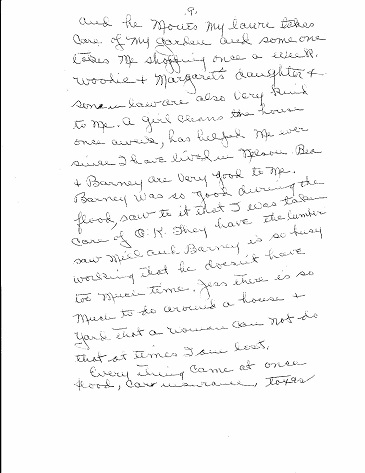 9,
and he mows my lawn takes
care of my garden and some one
takes me shopping once a week.
Woodie + Margaret's daughter +
son in law are also very kind
to me. A girl cleans the house
once a week, has helped me ever
since I have lived in Nelson. Bea
+ Barney are very good to me.
Barney was so good during the
flood, saw to it that I was taken
care of O.K. They have the lumber
saw mill and Barney is so busy
working that he doesn't have
too much time. Jess there is so
much to do around a house +
yard that a woman can not do
that at times I am lost.
Every thing came at once
flood, car insurance, taxes